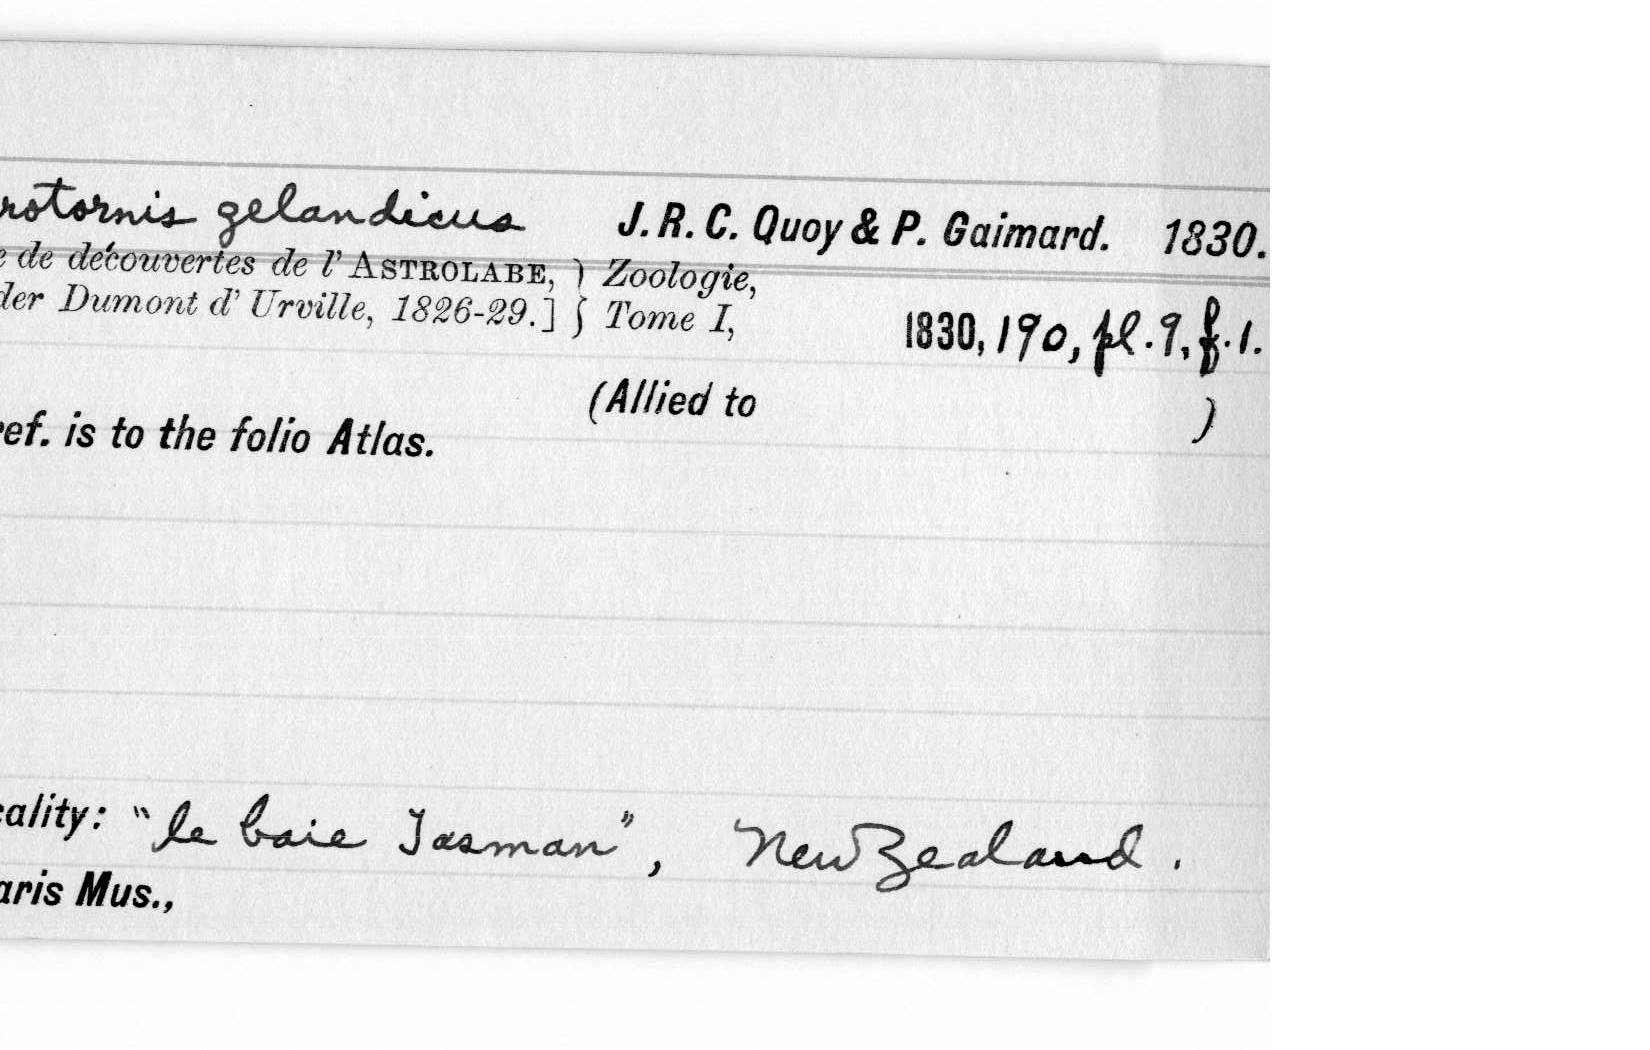 rotornis zelandicus J. R. C. Quoy & P. Gaimard. 1830.
e de découvertes de l' ASTROLABE, } Zoologie,
der Dumont d' Urville, 1826-29.] } Tome I, 1830, 190, pl. 9, f. 1.
(Allied to )
ref. is to the folio Atlas.
cality: "le baie Tasman", New Zealand.
aris Mus.,